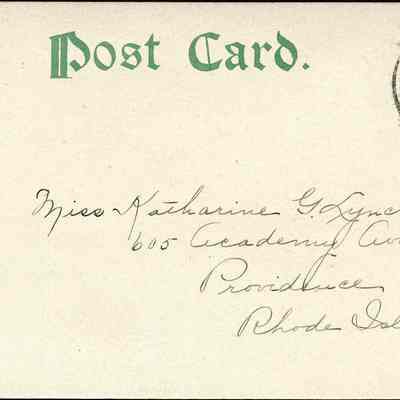 Post Card.
Miss Katharine G. Lync
605 Academy Av
Providence
Rhode Isl